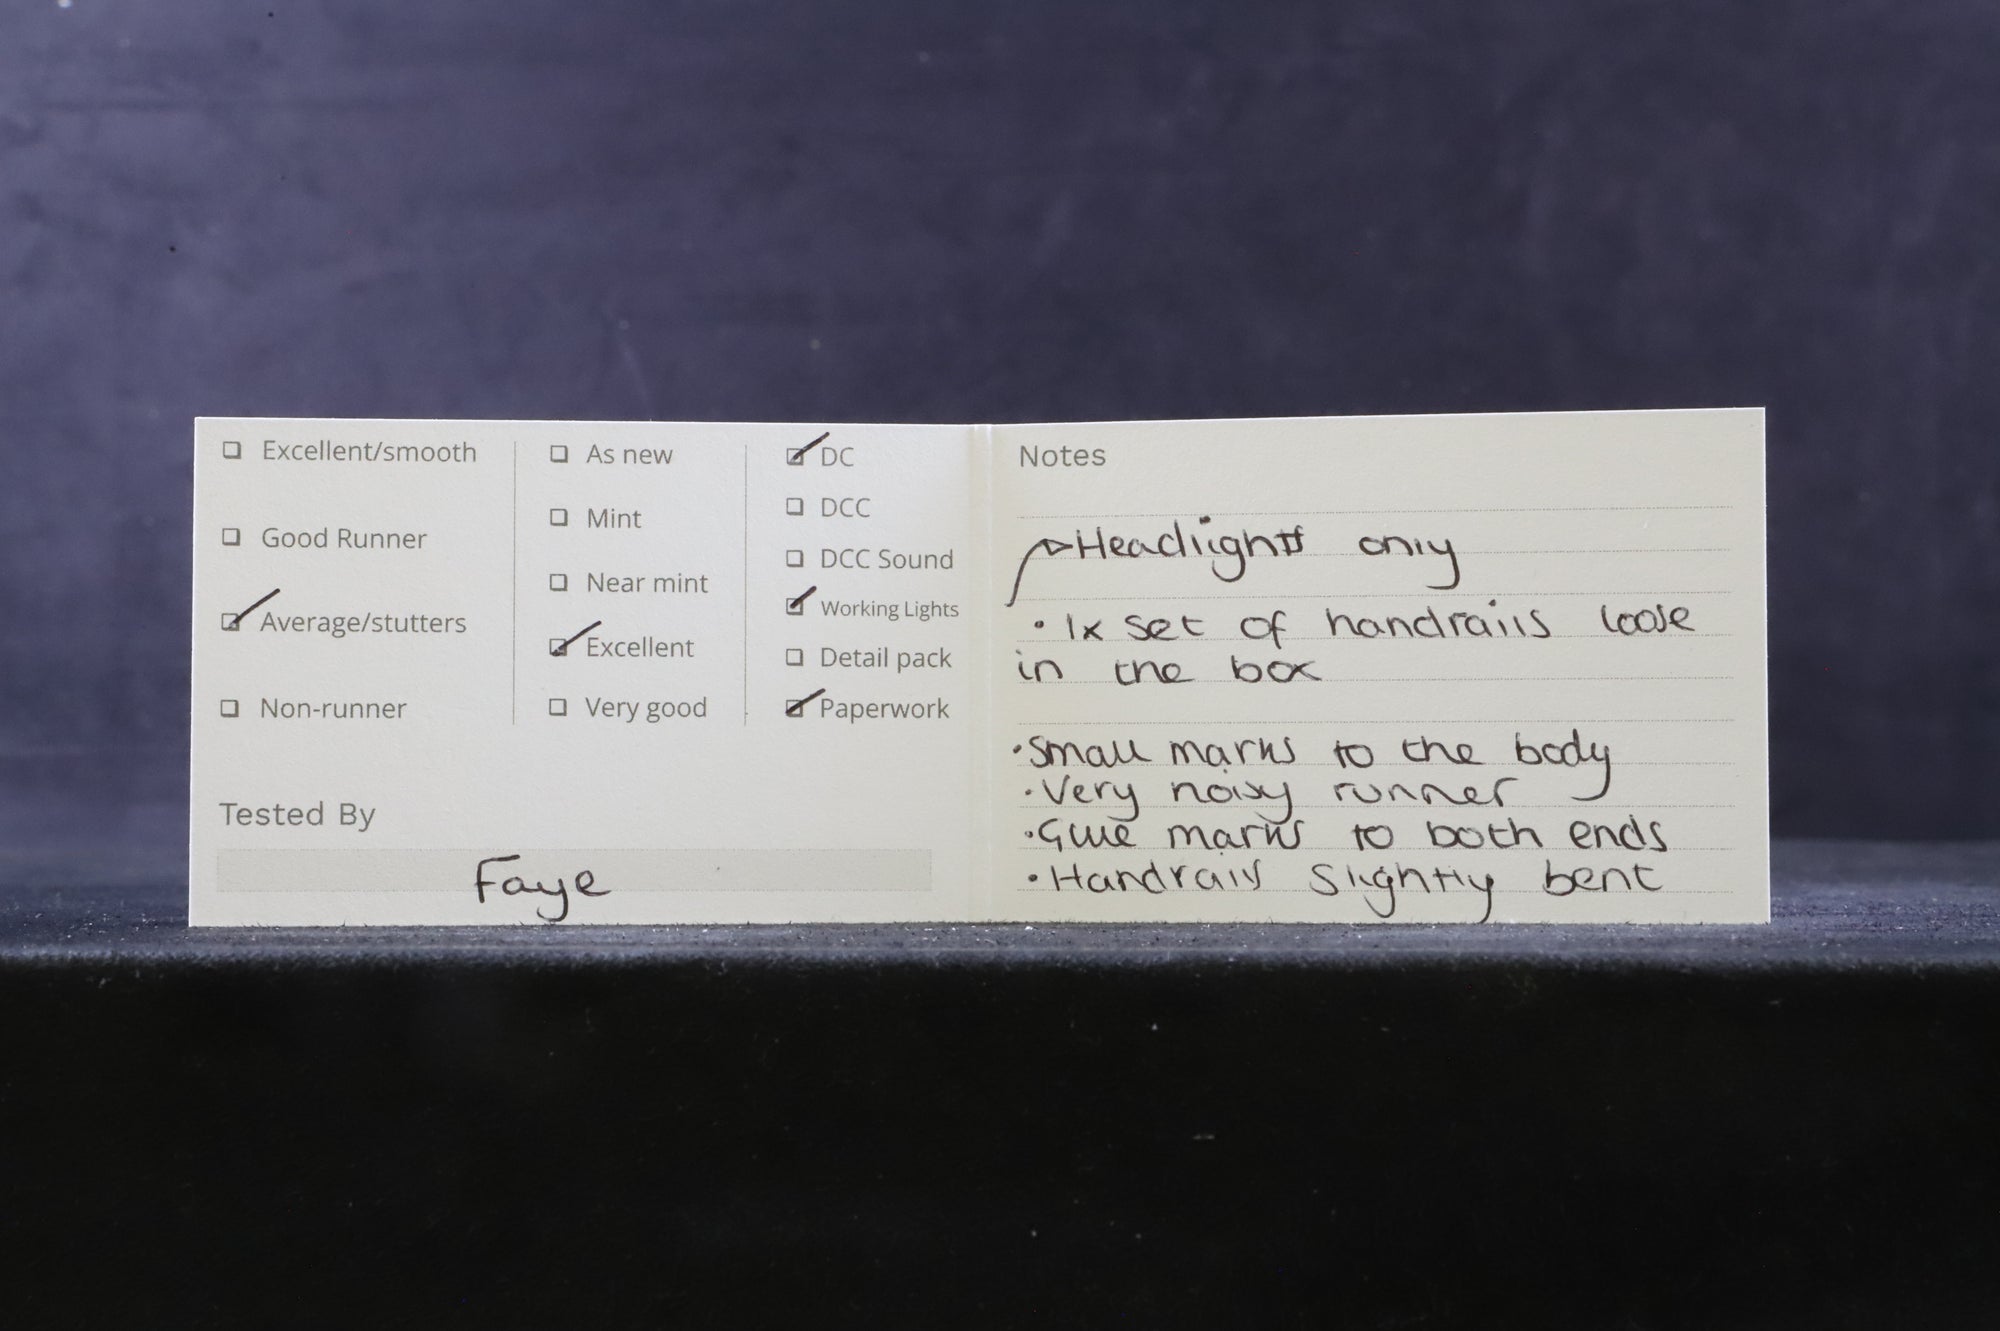 Excellent/smooth
Good Runner
Average/stutters
Non-runner
As new
Mint
Near mint
Excellent
Very good
DC
DCC
DCC Sound
Working Lights
Detail pack
Paperwork
Tested By
Faye
Notes
Headlights only
• 1x set of handrails loose
in the box
• Small marks to the body
• Very noisy runner
• Glue marks to both ends
• Handrails slightly bent